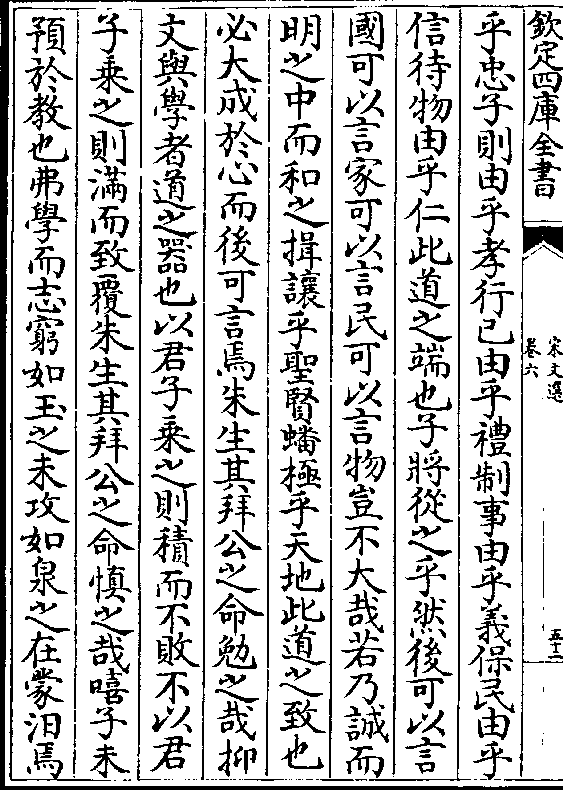 欽定四庫全書
宋文選
卷六
五十二
乎忠子則由乎孝行已由乎禮制事由乎義保民由乎
信待物由乎仁此道之端也子將從之乎然後可以言
國可以言家可以言民可以言物豈不大哉若乃誠而
明之中而和之揖讓乎聖賢蟠極乎天地此道之致也
必大成於心而後可言焉朱生其拜公之命勉之哉抑
文與學者道之器也以君子乘之則積而不敗不以君
子乘之則滿而致覆朱生其拜公之命慎之哉嘻子未
預於教也弗學而志窮如玉之未攻如泉之在蒙汨焉